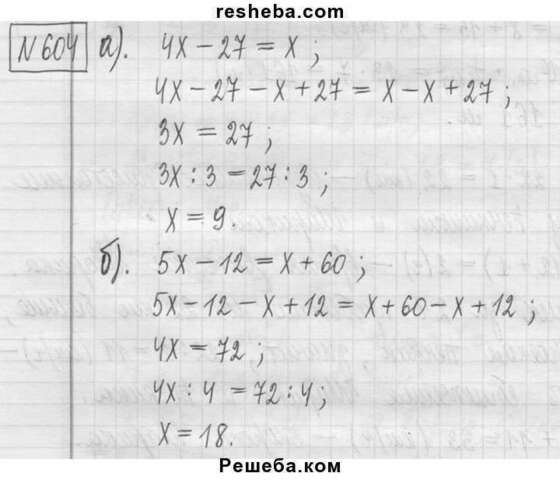 resheba.com
№604 а). 4x - 27 = x ;
4x - 27 - x + 27 = x - x + 27 ;
3x = 27 ;
3x : 3 = 27 : 3 ;
x = 9.
б). 5x - 12 = x + 60 ;
5x - 12 - x + 12 = x + 60 - x + 12 ;
4x = 72 ;
4x : 4 = 72 : 4 ;
x = 18.
Решеба.ком